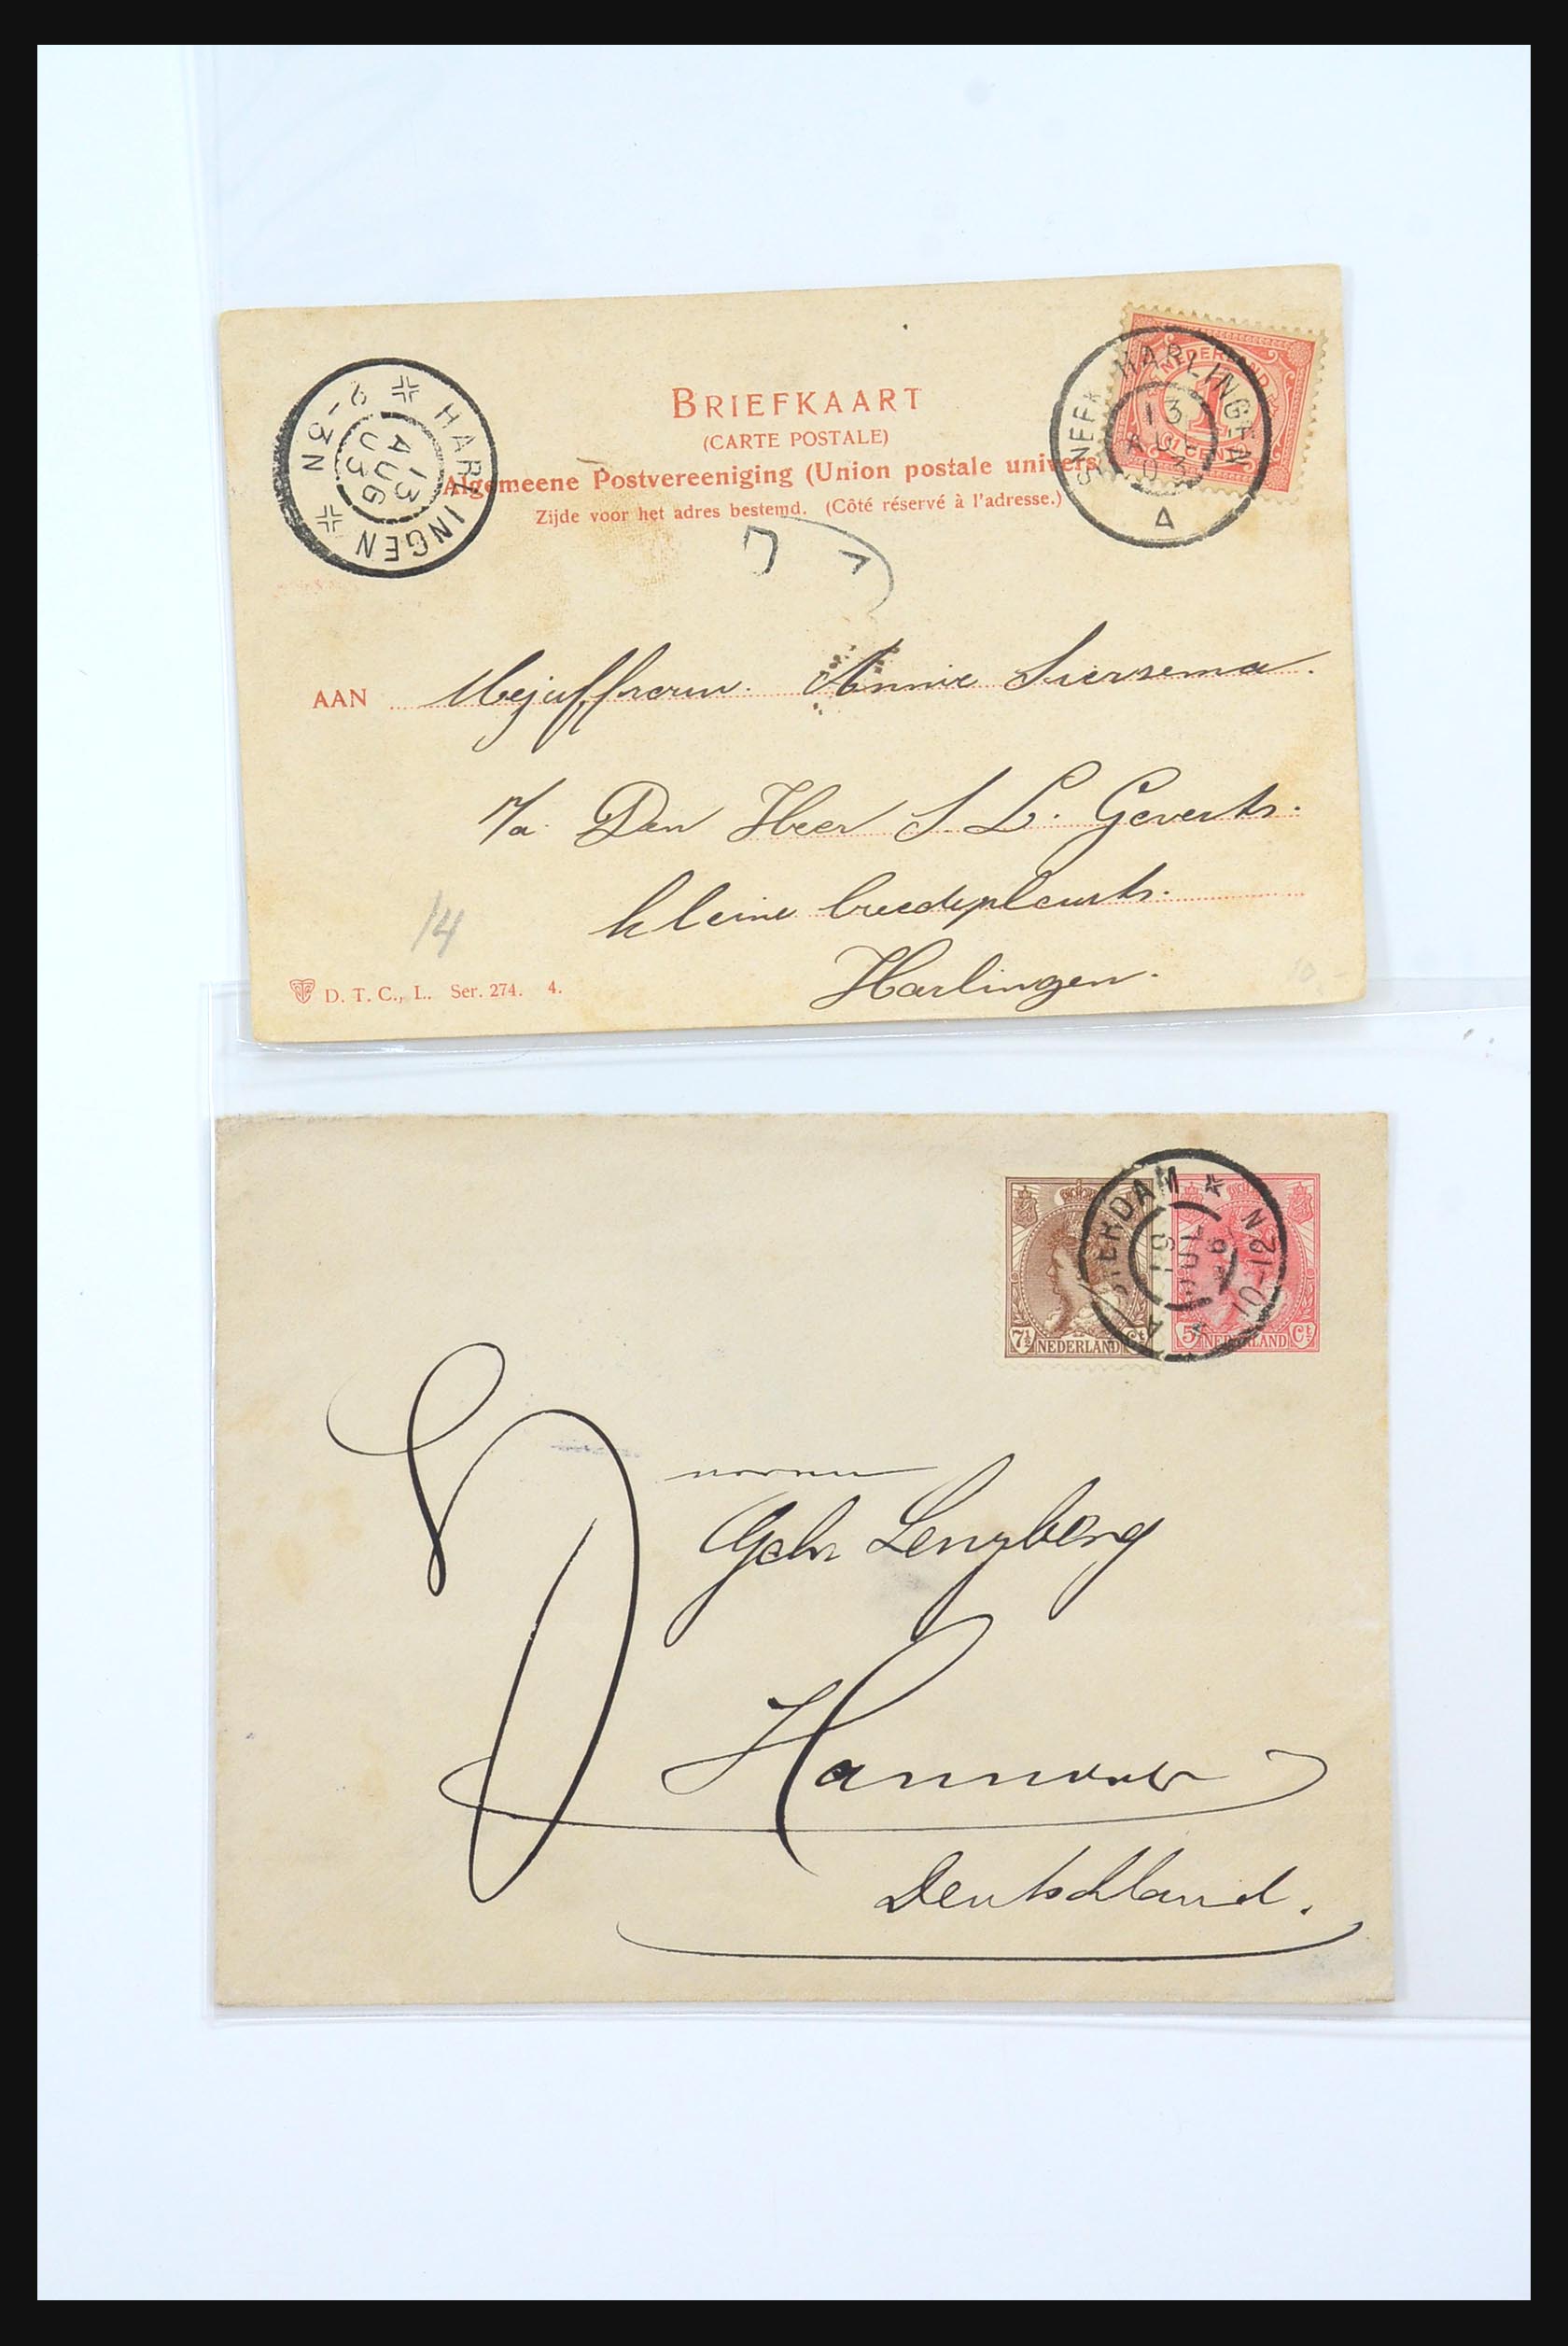 BRIEFKAART
(CARTE POSTALE)
Algemeene Postvereeniging (Union postale univers
Zijde voor het adres bestemd. (Côté réservé à l'adresse.)
HARLINGEN
13
AUG
03
2-3N
SNEEK-HARLINGEN
13
AUG
03
A
NEDERLAND
1
CENT
AAN Mejuffrouw. Annie Siersema.
p/a Den Heer S. L. Geverts.
kleine breedeplaats.
Harlingen.
14
10-
D. T. C., L. Ser. 274. 4.
7½ NEDERLAND Ct
5 NEDERLAND Ct
AMSTERDAM
19
JUL
10-12N
Gebr Lenzberg
Hannover
Deutschland.